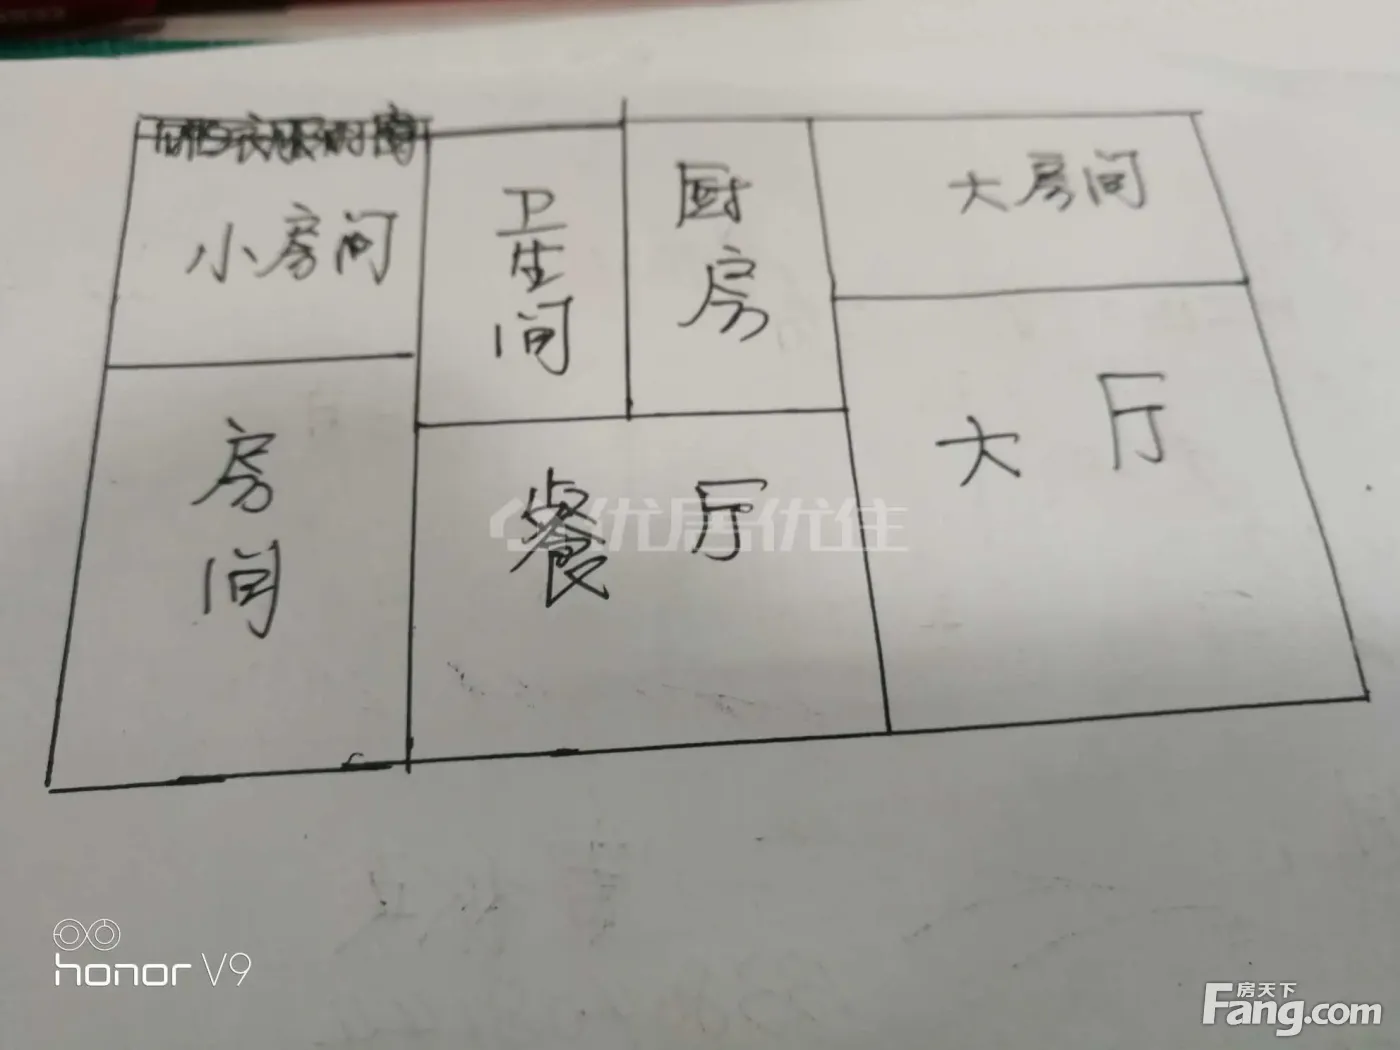 小房间
卫生间
厨房
大房间
房间
餐厅
大厅
优居优住
honor V9
房天下
Fang.com